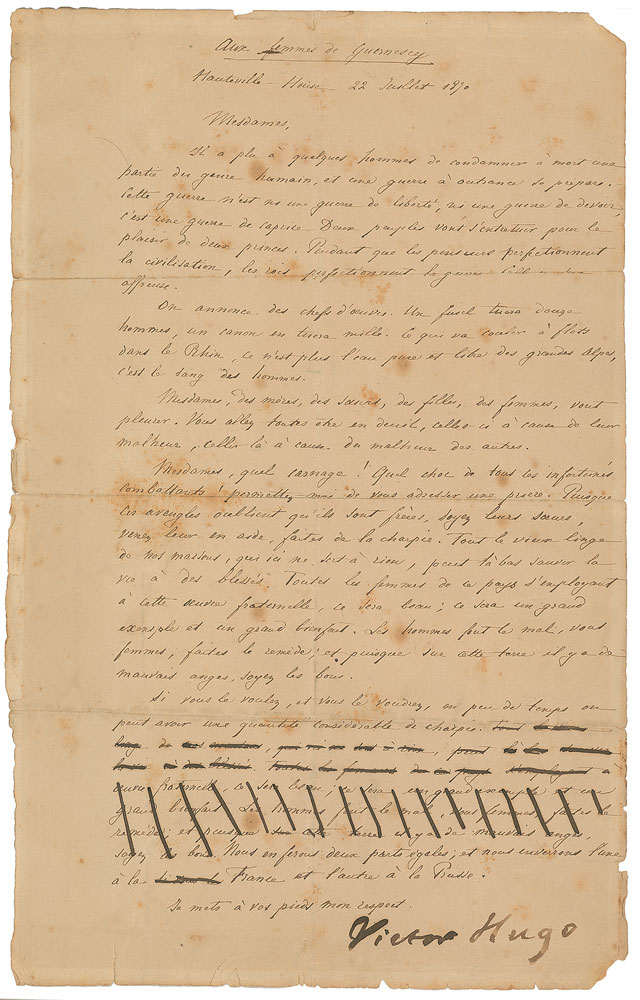 Aux femmes de Guernesey
Hauteville-House - 22 Juillet 1870
Mesdames,
Il a plu à quelques hommes de condamner à mort une
partie du genre humain, et une guerre à outrance se prépare.
Cette guerre n'est ni une guerre de liberté, ni une guerre de devoir,
c'est une guerre de caprice. Deux peuples vont s'entretuer pour le
plaisir de deux princes. Pendant que les penseurs perfectionnent
la civilisation, les rois perfectionnent la guerre. Celle-ci sera
affreuse.
On annonce des chefs d'œuvre. Un fusil tuera douze
hommes, un canon en tuera mille. Ce qui va couler à flots
dans le Rhin, ce n'est plus l'eau pure et libre des grandes Alpes,
c'est le sang des hommes.
Mesdames, des mères, des sœurs, des filles, des femmes, vont
pleurer. Vous allez toutes être en deuil, celles-ci à cause de leur
malheur, celles-là à cause du malheur des autres.
Mesdames, quel carnage ! Quel choc de tous les infortunés
combattants ! permettez-moi de vous adresser une prière. Puisque
ces aveugles oublient qu'ils sont frères, soyez leurs sœurs,
venez leur en aide, faites de la charpie. Tout le vieux linge
de nos maisons, qui ici ne sert à rien, peut là bas sauver la
vie à des blessés. Toutes les femmes de ce pays s'employant
à cette œuvre fraternelle, ce sera beau ; ce sera un grand
exemple et un grand bienfait. Les hommes font le mal, vous
femmes, faites le remède ; et puisque sur cette terre il y a de
mauvais anges, soyez les bons.
Si vous le voulez, et vous le voudrez, en peu de temps on
peut avoir une quantité considérable de charpie. Tout le vieux
linge de nos maisons, qui ici ne sert à rien, peut là bas sauver
la vie à des blessés. Toutes les femmes de ce pays s'employant à
œuvre fraternelle, ce sera beau ; ce sera un grand exemple et un
grand bienfait. Les hommes font le mal, vous femmes, faites le
remède ; et puisque sur cette terre il y a de mauvais anges,
soyez les bons. Nous en ferons deux parts égales, et nous enverrons l'une
à la France et l'autre à la Prusse.
Je mets à vos pieds mon respect.
Victor Hugo